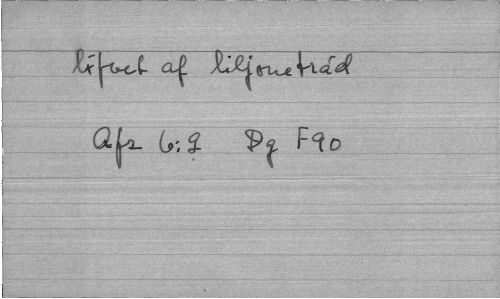 löfvet af liljoneträd
Afz 6:9 Dg F90